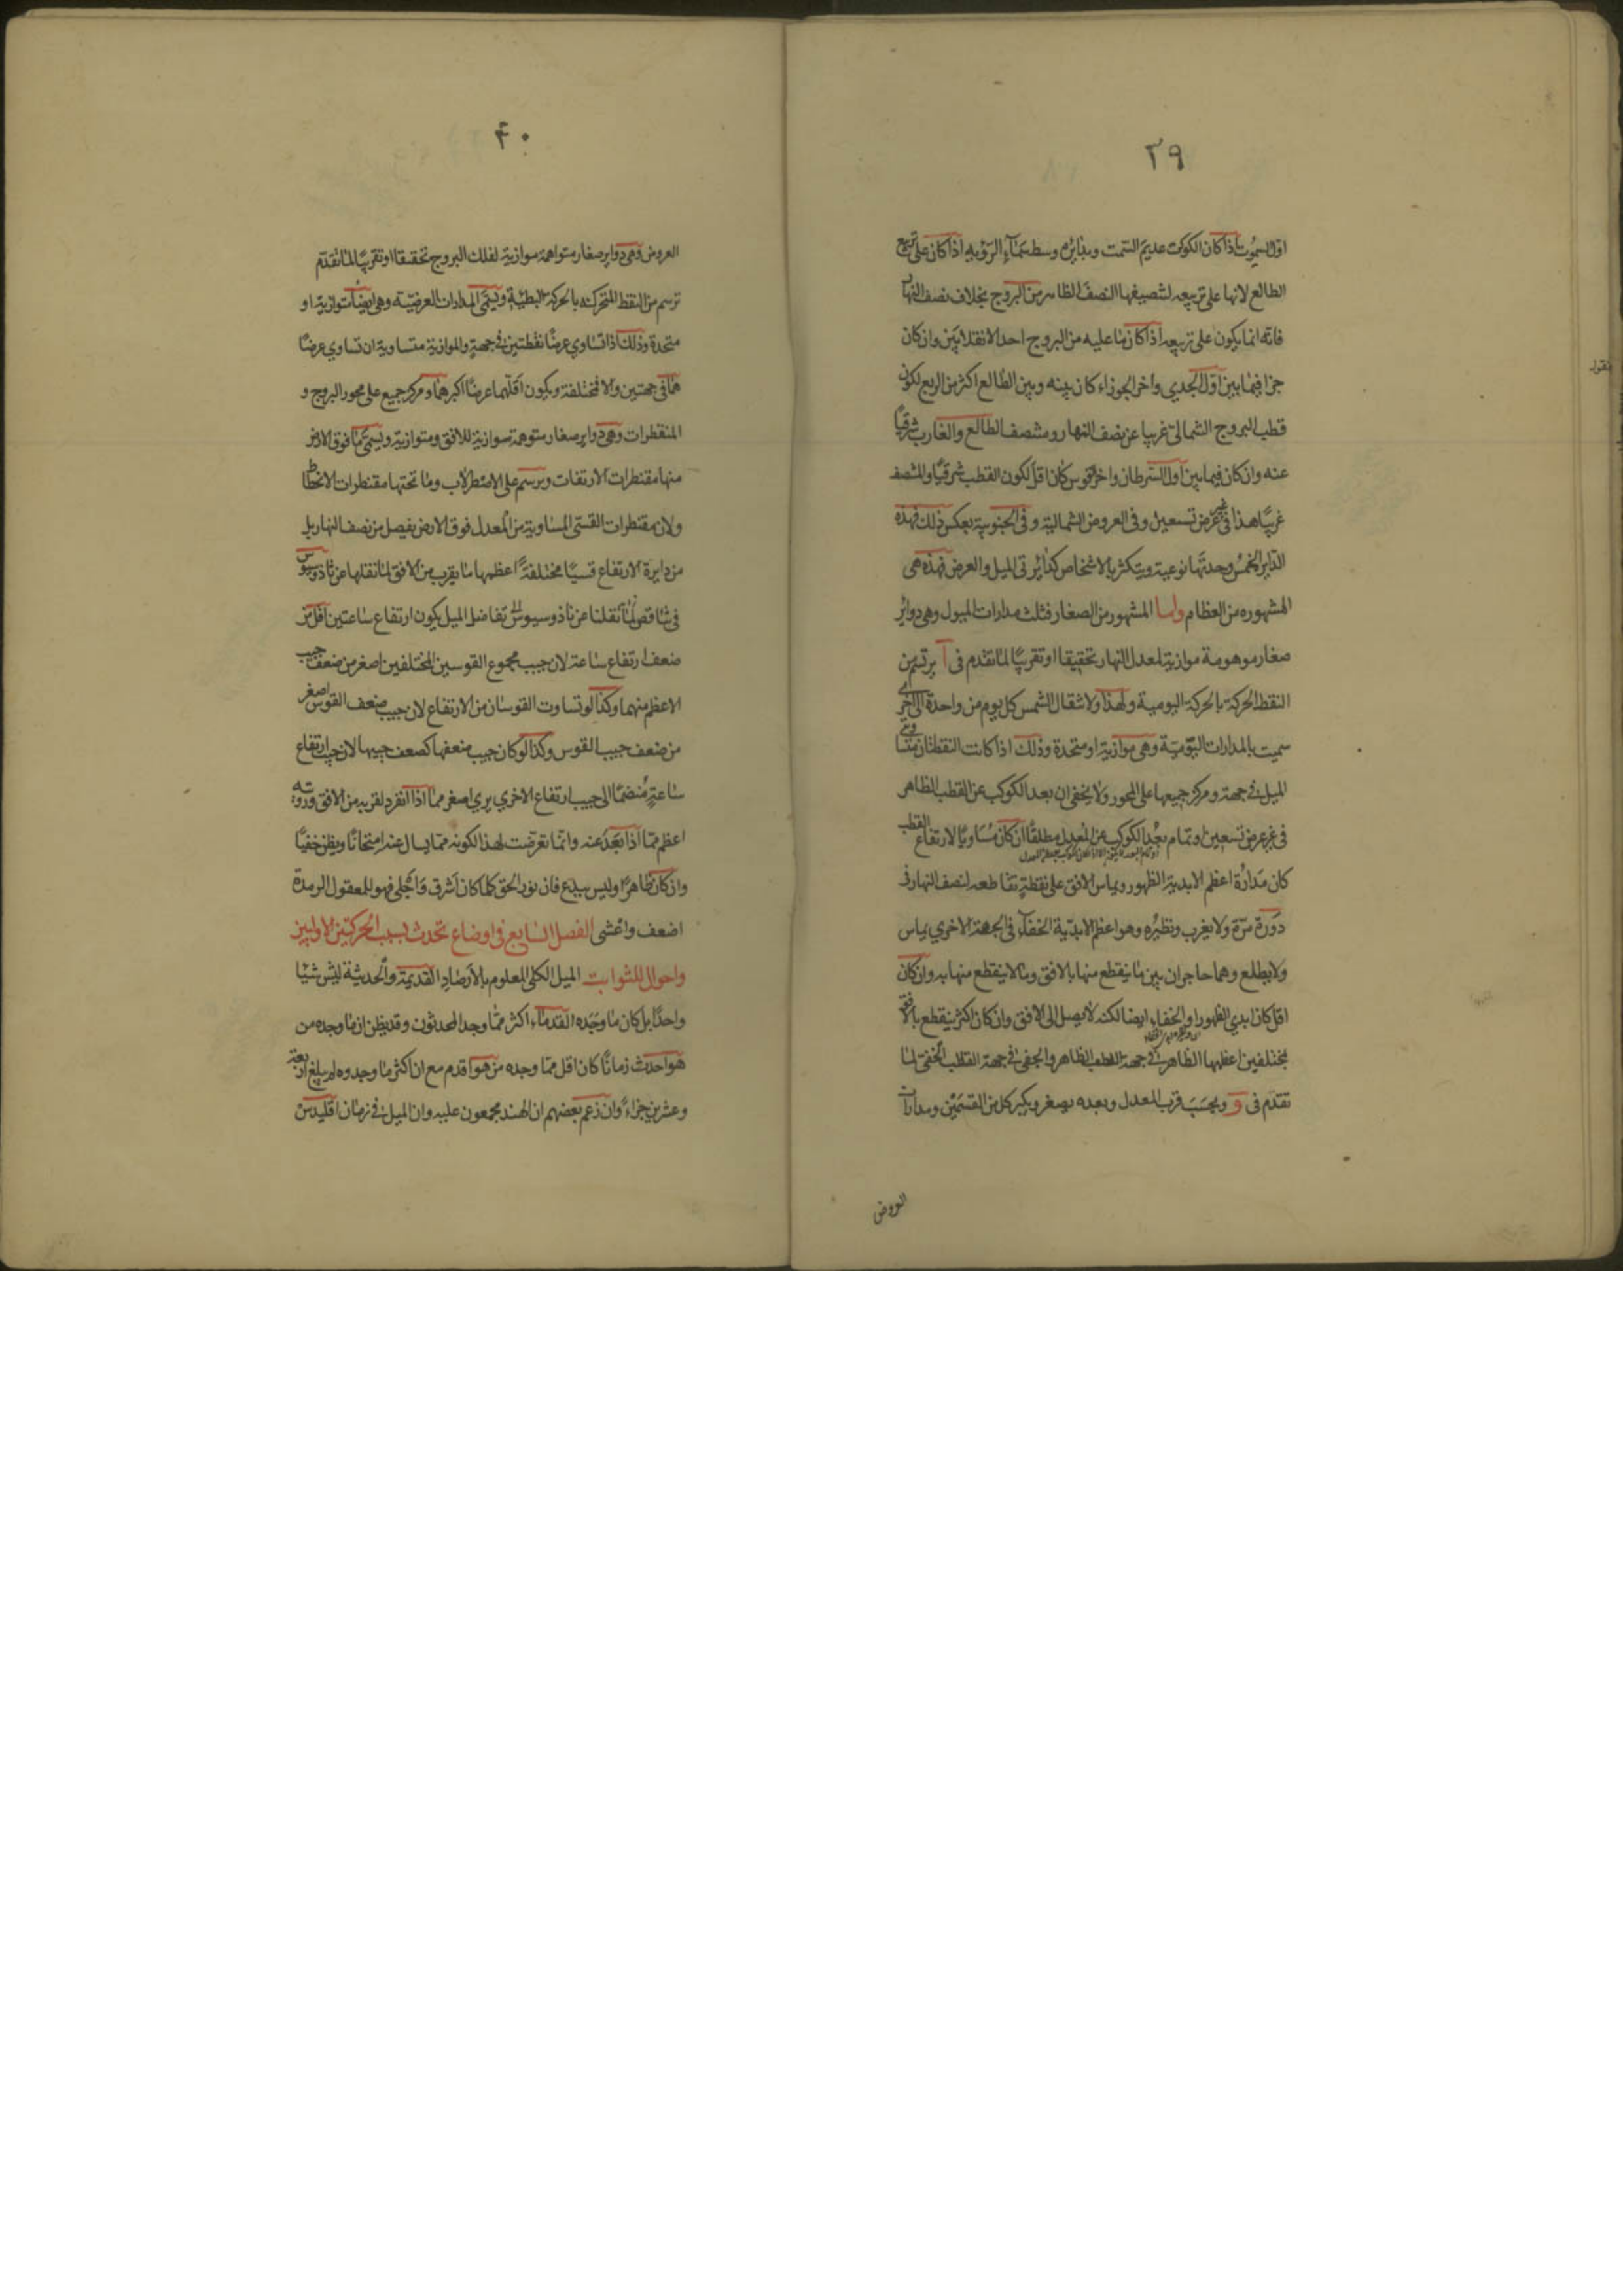 ٣٩
اول السموت اذا كان الكوكب عديم السمت وبدائرة وسط سماء الرؤية اذا كان على تربيع
الطالع لانها على تربيعه لتنصيفها النصف الظاهر من البروج بخلاف نصف النهار
فانه انما يكون على تربيعه اذا كان ما عليه من البروج احد الانقلابين وان كان
جزا فيما بين اول الجدي واخر الجوزاء كان بينه وبين الطالع اكثر من الربع لكون
قطب البروج الشمالي غربيا عن نصف النهار ومنتصف الطالع والغارب شرقيا
عنه وان كان فيما بين اول السرطان واخر القوس كان اقل لكون القطب شرقيا والمنتصف
غربيا هذا في غير عرض تسعين وفي العروض الشمالية وفي الجنوبية بعكس ذلك فهذه
الدواير الخمس وحدتها نوعية ويتكثر بالاشخاص كدائرتي الميل والعرض فهذه هي
المشهوره من العظام واما المشهور من الصغار فثلث مدارات الميول وهي دوائر
صغار موهومة موازية لمعدل النهار تحقيقا او تقريبا لما تقدم في آ يرتسم من
النقط الحركة بالحركة اليومية ولهذا ولانتقال الشمس كل يوم من واحدة الى اخرى
سميت بالمدارات اليومية وهي موازية او متحدة وذلك اذا كانت النقطتان متساويتي
الميل في جهة ومركز جميعها على المحور ولا يخفى ان بعد الكوكب عن القطب الظاهر
في غير عرض تسعين او تمام بعد الكوكب عن المعدل مطلقا ان كان مساويا لارتفاع القطب
كان مداره اعظم الابدية الظهور ويماس الافق على نقطة تقاطعه لنصف النهار في
دورة مرة ولا يغرب ونظيره وهو اعظم الابدية الخفاء في الجهة الاخرى يماس
ولا يطلع وهما حاجزان بين ما ينقطع منها بالافق وما لا ينقطع منها به وان كان
اقل كان ابدي الظهور او الخفاء ايضا لكنه لا يصل الى الافق وان كان اكثر ينقطع بالافق
بمختلفين اعظمها الظاهر في جهة القطب الظاهر والخفى في جهة القطب الخفى لما
تقدم في و وبحسب قرب المعدل وبعده يصغر ويكبر كل من القسمين ومدارات
العروض
٤٠
العروض وهي دواير صغار متواهمة موازية لفلك البروج تحقيقا او تقريبا لما تقدم
ترسم من النقط المتحركة بالحركة البطيئة ويسمى المدارات العرضية وهي ايضا متوازية او
متحدة وذلك اذا تساوي عرضا نقطتين في جهة والموازية متساوية ان تساوي عرضا
هما في جهتين والا فمختلفة ويكون اقلهما عرضا اكبر هما ومركز جميع على محور البروج و
المنقطرات وهي دواير صغار متوهمة موازية للافق ومتوازية ويسمى ما فوق الارض
منها مقنطرات الارتفاعات وترسم على الاصطرلاب وما تحتها مقنطرات الانحطاط
ولان مقنطرات القسى المساوية من المعدل فوق الارض يفصل من نصف النهار بل
من دايرة الارتفاع قسيا مختلفة اعظمها ما يقرب من الافق لما نقلها عن ثاوذوسيوس
في تناقص لما نقلنا عن ثاوذوسيوس تفاضل الميل يكون ارتفاع ساعتين اقل من
ضعف ارتفاع ساعة لان جيب مجموع القوسين المختلفين اصغر من ضعف جيب
الاعظم منهما وكذا لو تساوت القوسان من الارتفاع لان جيب ضعف القوس اصغر
من ضعف جيب القوس وكذا لو كان جيب ضعفها كضعف جيبها لان جيب ارتفاع
ساعة منضما الى جيب ارتفاع الاخرى يرى اصغر مما اذا انفرد لقربه من الافق
اعظم مما اذا بعد عنه وانما تعرضت لهذا لكونه مما يسال عنه امتحانا ويظن خفيا
وان كان ظاهرا وليس ببدع فان نور الحق كلما كان اشرق واجلى فهو للعقول الرمدة
اضعف واعشى الفصل السابع في اوضاع تحدث بسبب الحركتين الاوليين
واحوال للثوابت الميل الكلى المعلوم بالارصاد القديمة والحديثة ليس شيئا
واحدا بل كان ما وجده القدماء اكثر مما وجد المحدثون وقد يظن ان ما وجده من
هو احدث زمانا كان اقل مما وجده من هو اقدم مع ان اكثر ما وجدوه لم يبلغ اربعة
وعشرين جزاء وان زعم بعضهم ان الهند مجمعون عليه وان الميل في زمان اقليدس